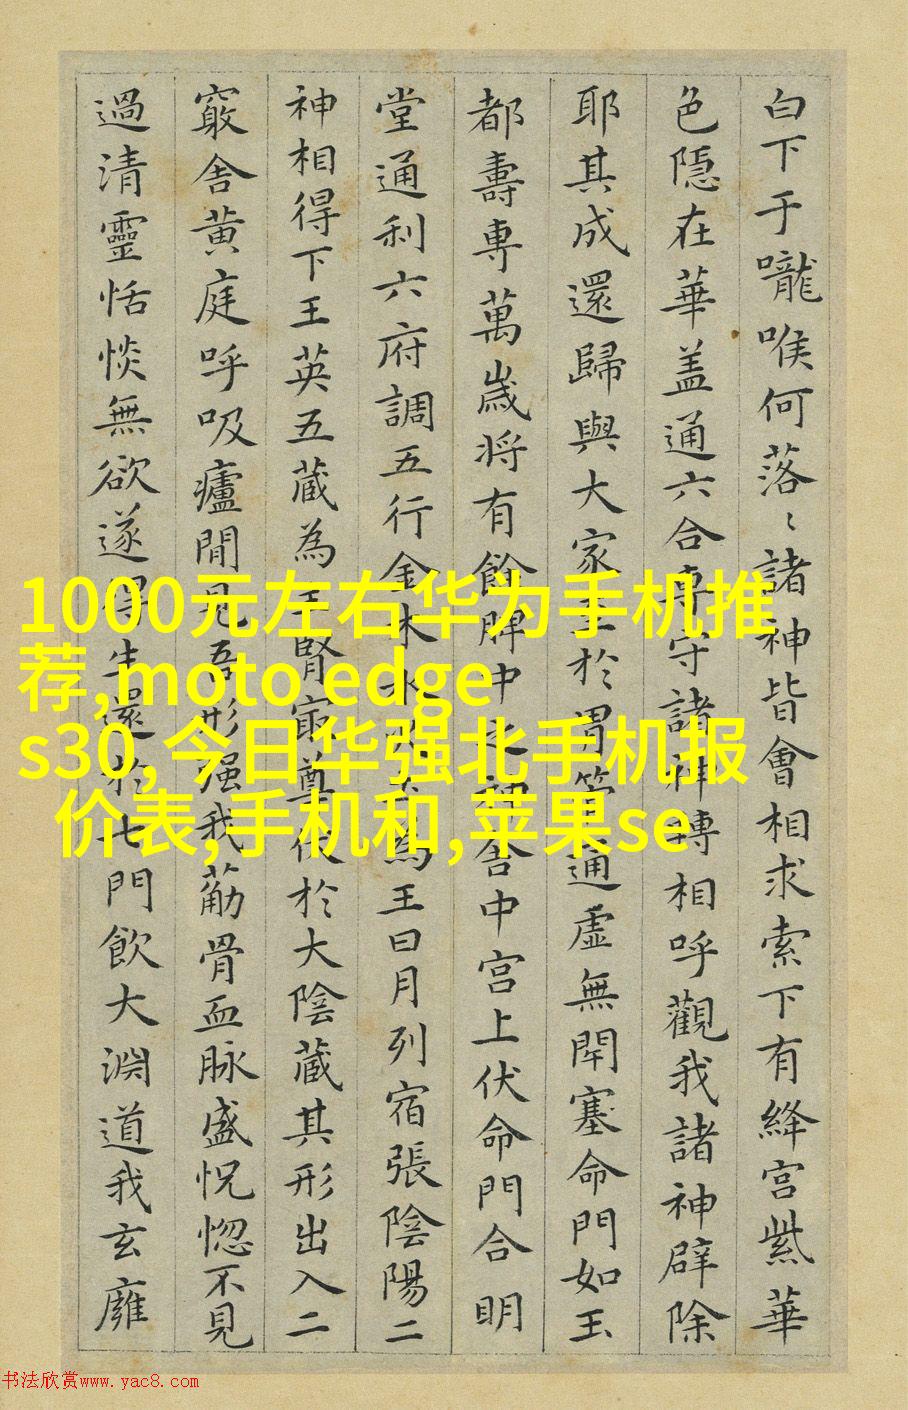 白下于嚨喉何落〻諸神皆會相求索下有絳宮紫華
色隱在華盖通六合專守諸神轉相呼觀我諸神辟除
耶其成還歸與大家至於胃管通虛無閇塞命門如玉
都壽專萬歲将有餘脾中之神舍中宮上伏命門合明
堂通利六府調五行金木水火土為王日月列宿張陰陽二
神相得下王英五藏為主腎㝡尊伏於大陰藏其形出入二
竅舍黄庭呼吸廬間見吾形强我筋骨血脉盛怳惚不見
過清靈恬惔無欲遂得生還於七門飲大淵道我玄廱
1000元左右华为手机推
荐,moto edge
s30,今日华强北手机报
价表,手机和,苹果se
书法欣赏www.yac8.com